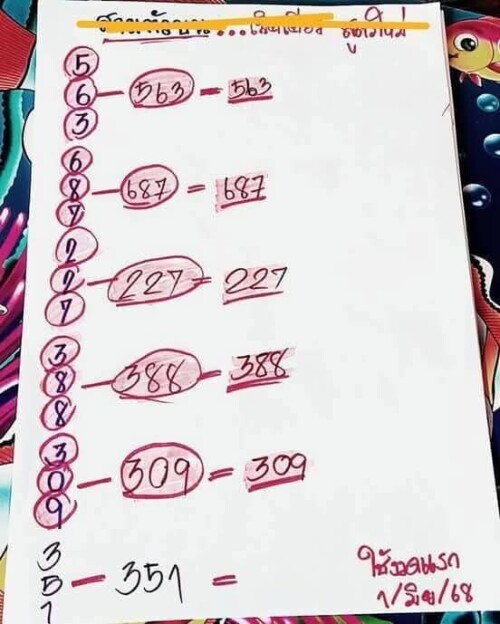 5
6 – 563 = 563
3
6
8 – 687 = 687
7
2
2 – 227 = 227
7
3
8 – 388 – 388
8
3
0 – 309 = 309
9
3
5 – 351 =
1
ใช้งวดแรก
1/มิย/68